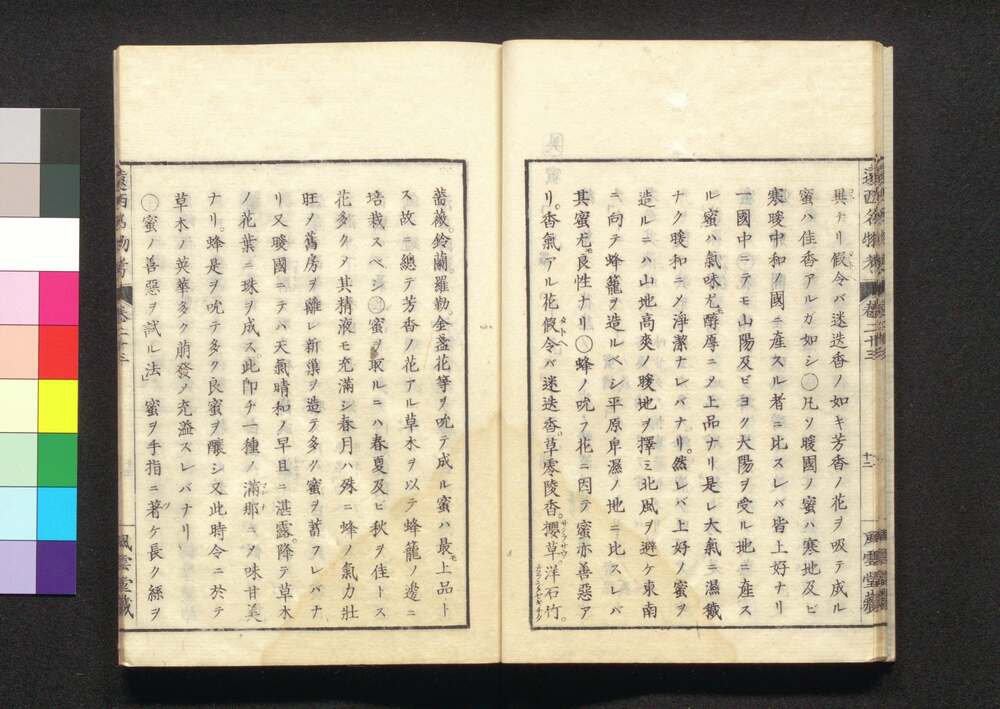 異ナリ假令バ迷迭香ノ如キ芳香ノ花ヲ吸テ成ル
蜜ハ佳香アルガ如シ◯凡ソ暖國ノ蜜ハ寒地及ビ
寒暖中和ノ國ニ産スル者ニ比スレバ皆上好ナリ
一國中ニテモ山陽及ビヨク大陽ヲ受ル地ニ産ス
ル蜜ハ氣味尤モ醇厚ニメ上品ナリ是レ大氣ニ濕穢
ナク暖和ニメ淨潔ナレバナリ。然レバ上好ノ蜜ヲ
造ルニハ山地高爽ノ暖地ヲ擇ミ北風ヲ避ケ東南
ニ向テ蜂籠ヲ造ルベシ平原卑濕ノ地ニ比スレバ
其蜜尤モ良性ナリ◯蜂ノ吮フ花ニ因テ蜜亦善惡ア
リ。香氣アル花假令バ迷迭香。草零陵香。櫻草。洋石竹。
薔薇。鈴蘭羅勒。金盞花等ヲ吮テ成ル蜜ハ最モ上品ト
ス故ニ總テ芳香ノ花アル草木ヲ以テ蜂籠ノ邊ニ
培栽スベシ◯蜜ヲ取ルニハ春夏及ビ秋ヲ佳トス
花多クメ其精液モ充滿シ春月ハ殊ニ蜂ノ氣力壯
旺ノ舊房ヲ離レ新巢ヲ造テ多ク蜜ヲ蓄フレバナ
リ又暖國ニテハ天氣晴和ノ早旦ニ湛露。降テ草木
ノ花葉ニ珠ヲ成ス。此即チ一種ノ滿那ニメ味甘美
ナリ。蜂是ヲ吮テ多ク良蜜ヲ釀シ又此時令ニ於テ
草木ノ英華多ク萠發メ充溢スレバナリ
◯蜜ノ善惡ヲ試ル法」蜜ヲ手指ニ著ケ長ク絲ヲ
遠西名物考 卷二十三
十二
風雲堂藏